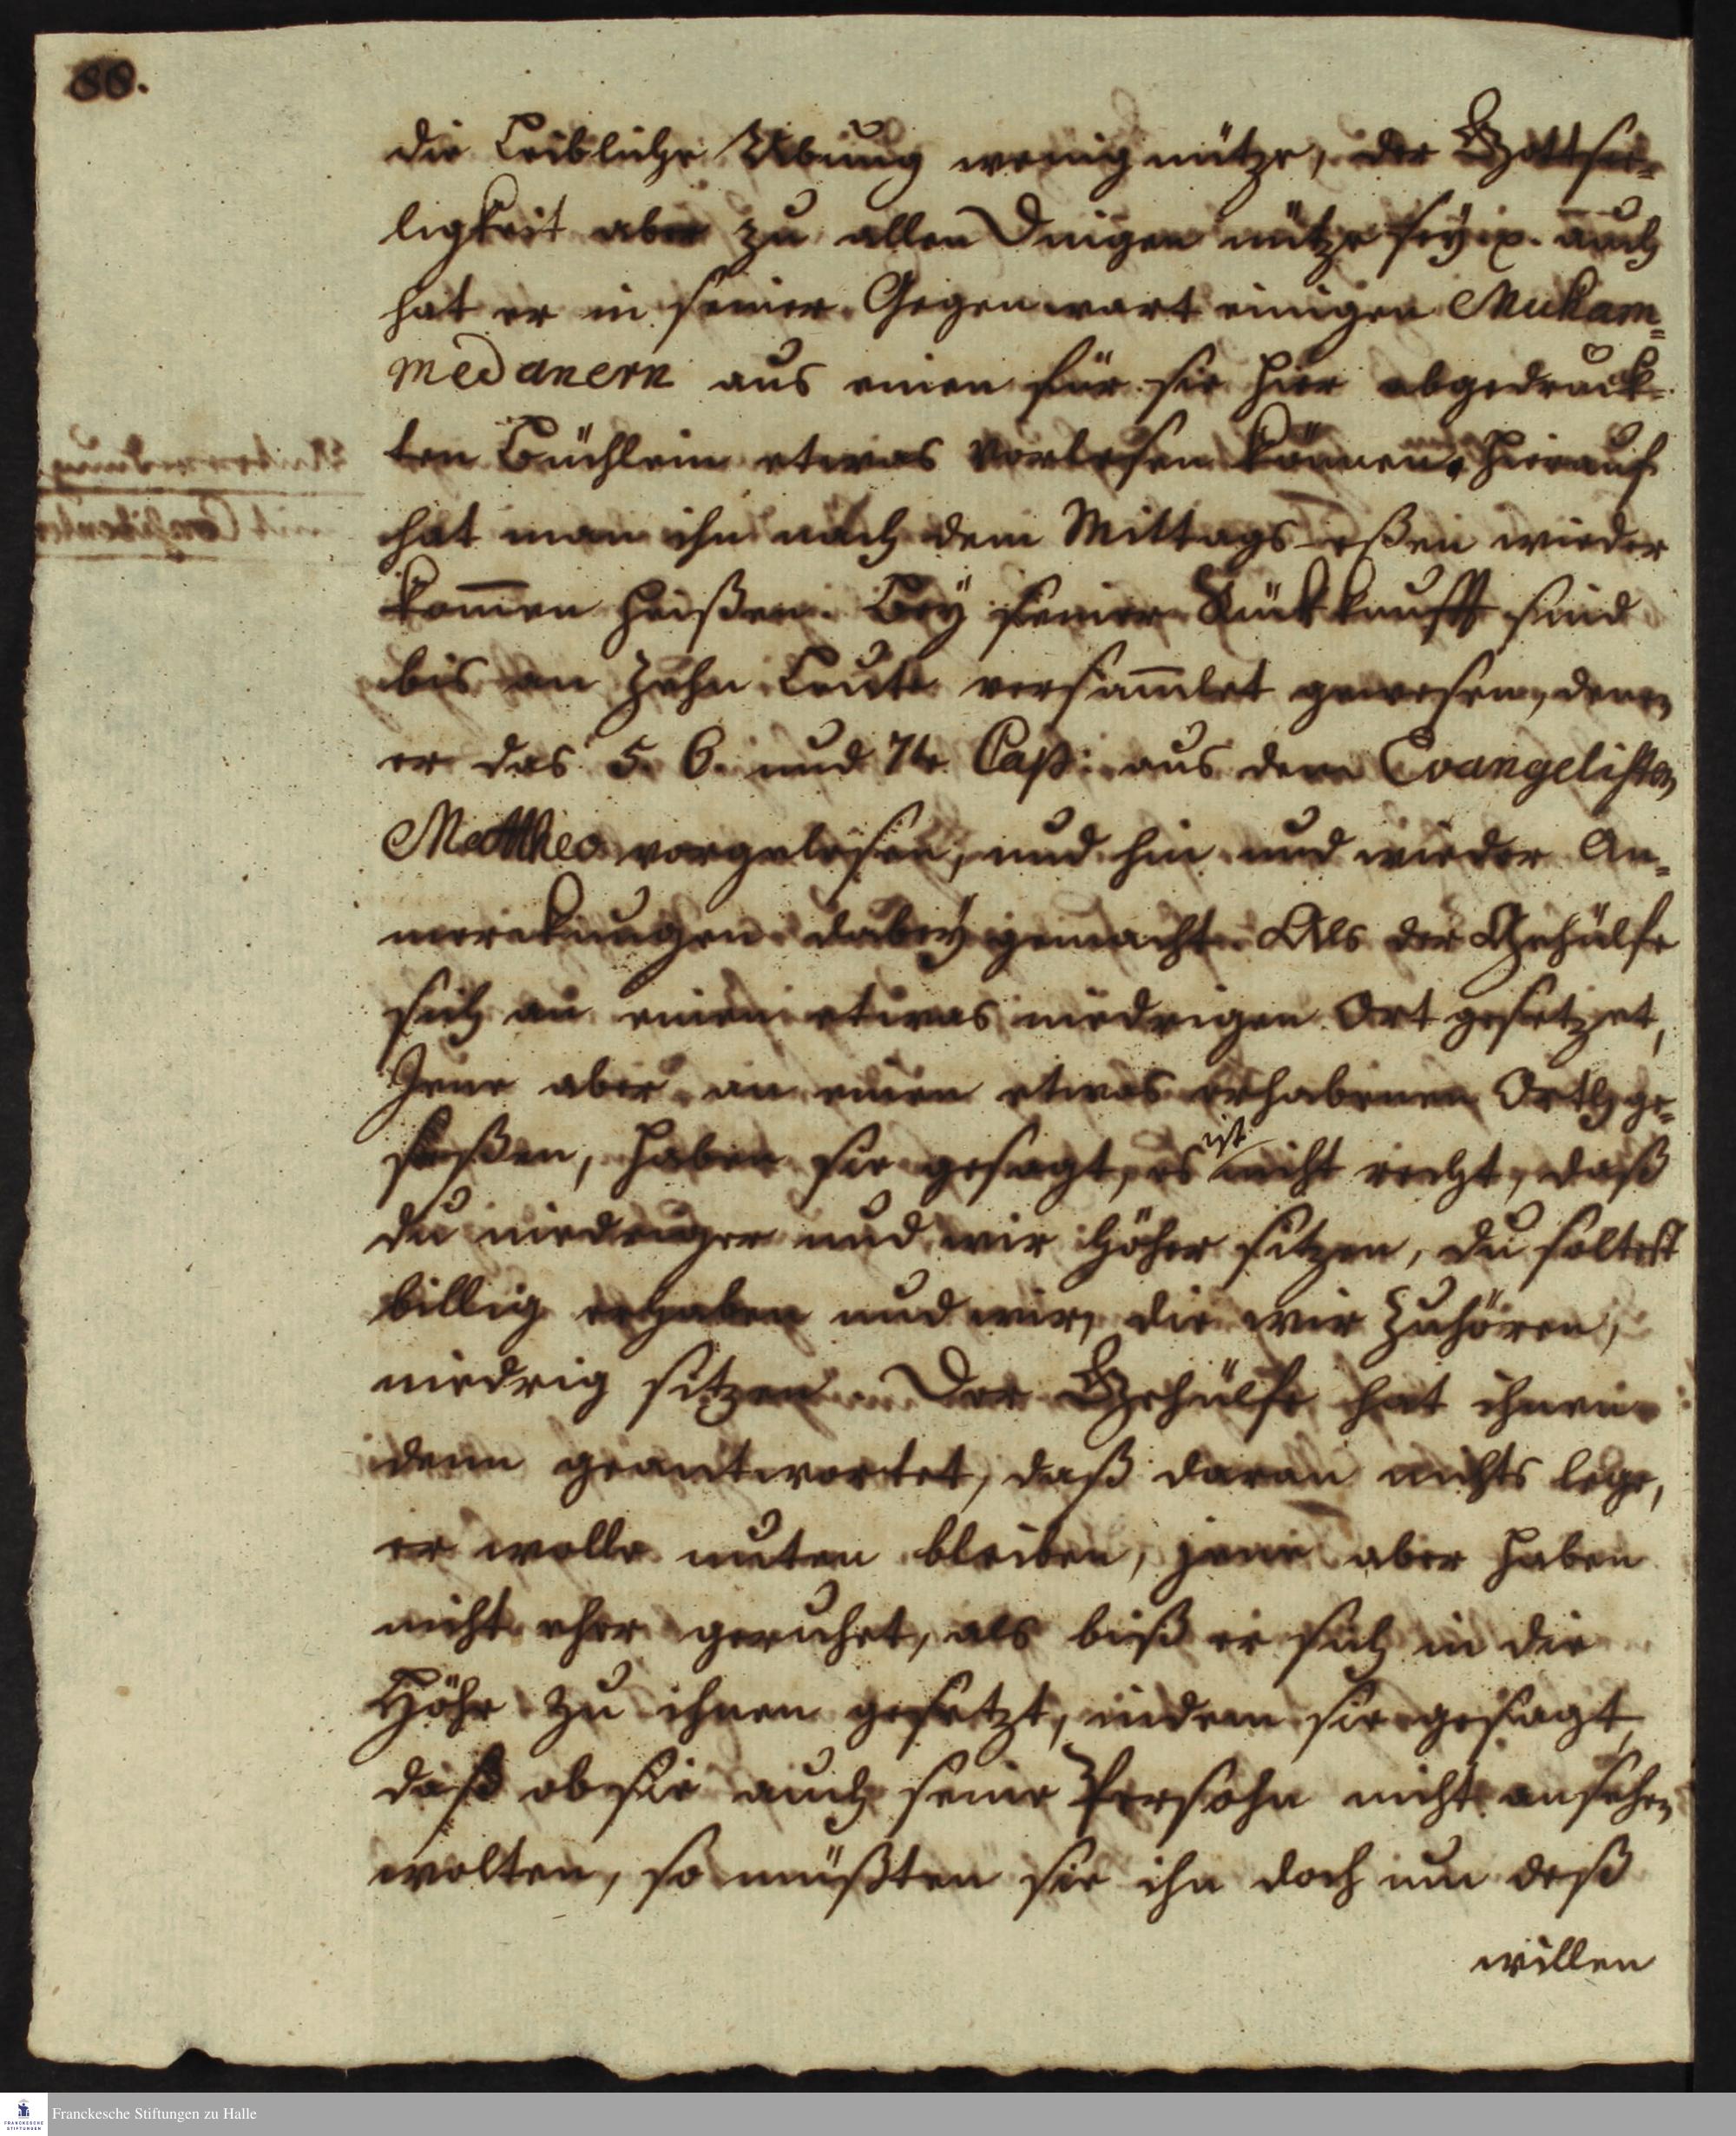 88.
die Leibliche Übung wenig nütze, der Gottsee=
ligkeit aber zu allen Dingen nütze sey p. auch
hat er in seiner Gegenwart einigen Muham=
medanern aus einen für sie hier abgedruck=
ten Büchlein etwas vorlesen können. Hierauf
hat man ihn nach dem Mittags eßen wieder
kom̄en heißen. Bey seiner Rückkunfft sind
bis an zehn Leute versam̄let gewesen, denen
er das 5. 6. und 7te Cap: aus dem Evangelisten
Mattheo vorgelesen, und hin und wieder An=
merckungen dabey gemacht. Als der Gehülfe
sich an einem etwas niedrigen Ort gesetzet,
Jene aber an einen etwas erhabenen Orth ge=
seßen, haben sie gesagt, es ist nicht recht, daß
du niedriger und wir höher sitzen, du soltest
billig erhaben und wir, die wir zuhören,
niedrig sitzen. Der Gehülfe hat ihnen
denn geantwortet, daß daran nichts lege,
er wolle unten bleiben, jene aber haben
nicht eher geruhet, als biß er sich in die
Höhe zu ihnen gesetzt, indem sie gesagt,
daß ob sie auch seine Persohn nicht ansehen
wolten, so müßten sie ihn doch um deß
willen
Franckesche Stiftungen zu Halle
FRANCKESCHE
STIFTUNGEN